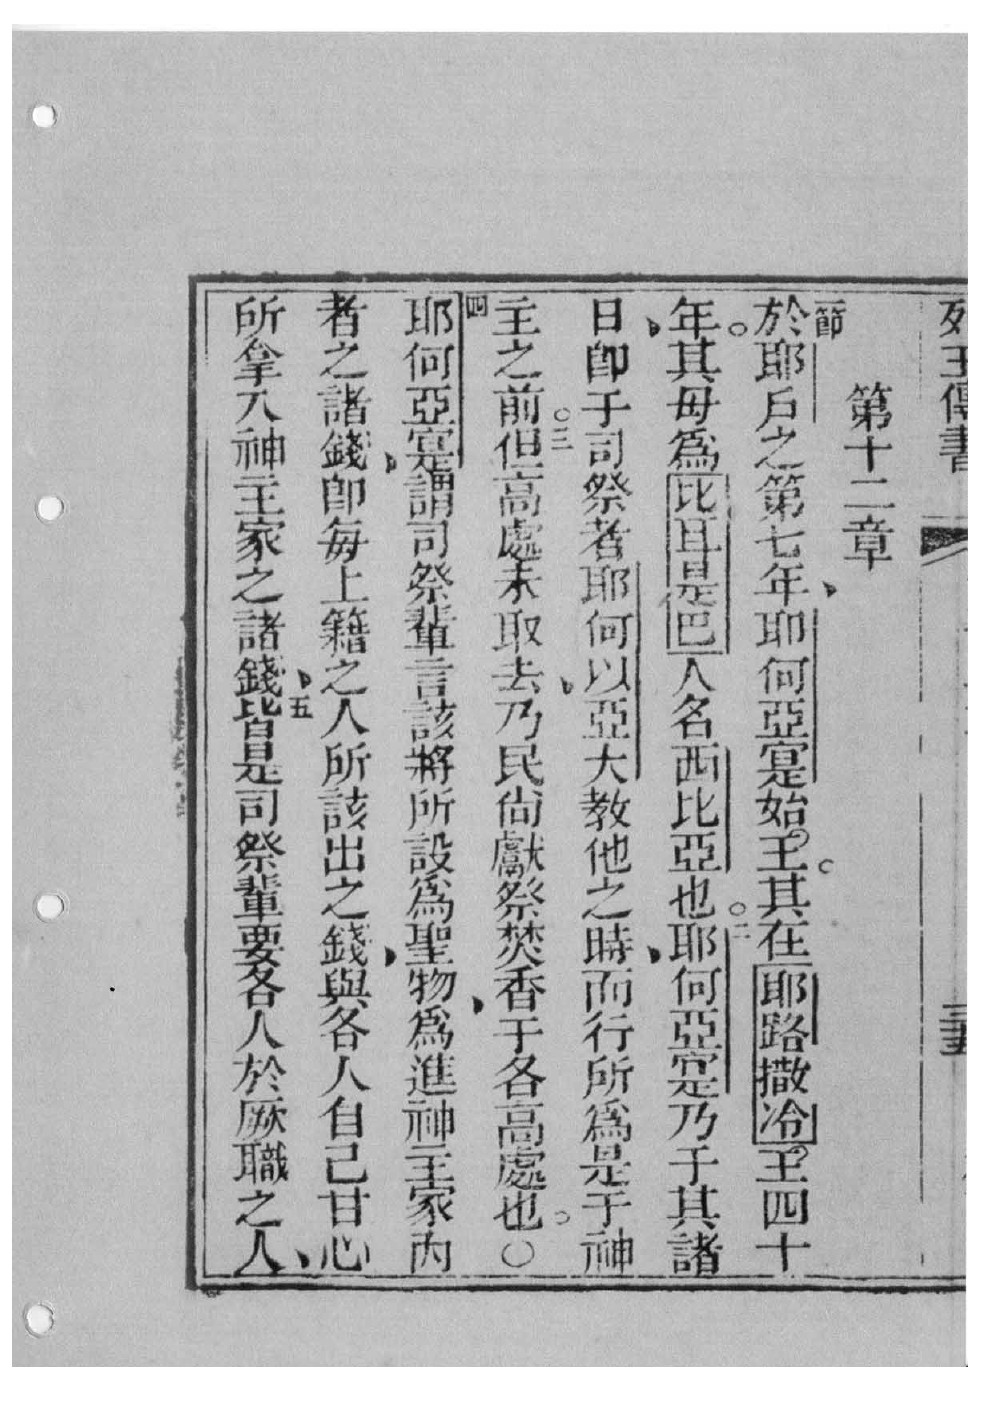 列王傳書
第十二章
一節
於耶戶之第七年、耶何亞寔始王。其在耶路撒冷王四十
年。其母爲比耳是巴人名西比亞也。二耶何亞寔乃于其諸
日、卽于司祭者耶何以亞大教他之時、而行所爲是于神
主之前。三但高處未取去、乃民尙獻祭焚香于各高處也。〇
四耶何亞寔謂司祭輩言該將所設爲聖物、爲進神主家內
者之諸錢、卽每上籍之人所該出之錢、與各人自己甘心
所拿入神主家之諸錢、五皆是司祭輩要各人於厥職之人、